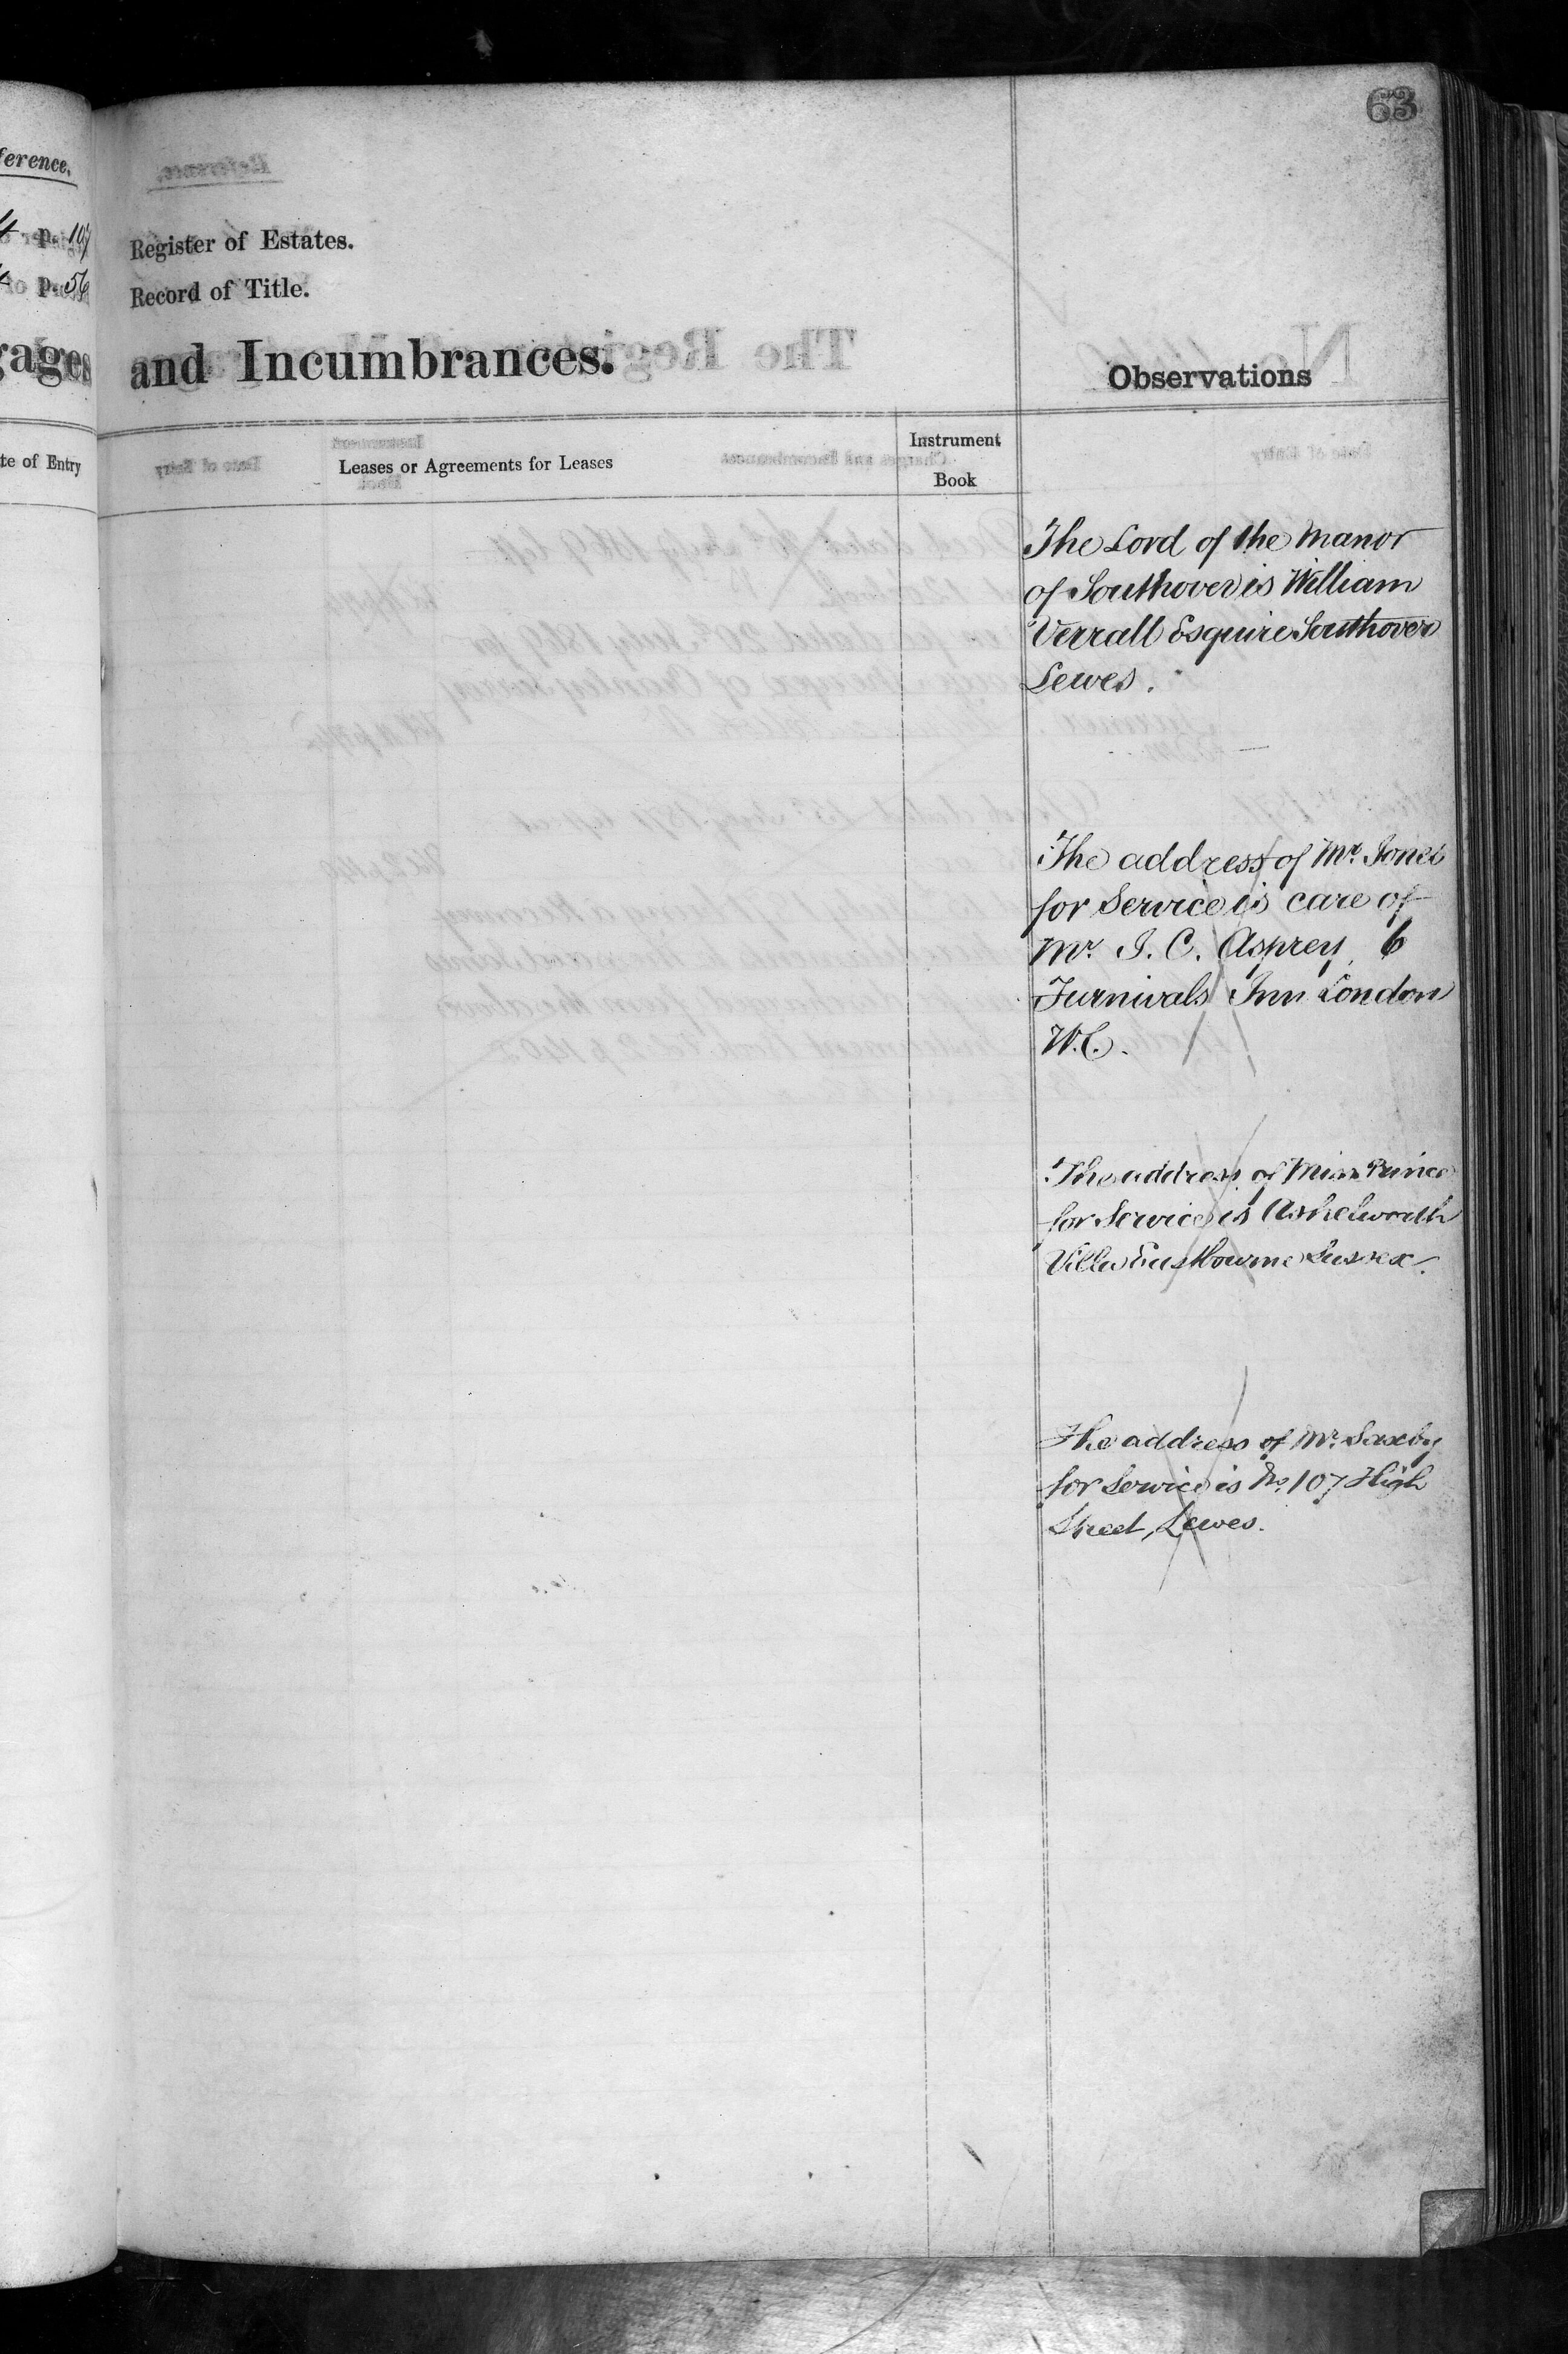 63
ference.
p. 107
p. 56
gages
te of Entry
Register of Estates.
Record of Title.
and Incumbrances.
Observations
Leases or Agreements for Leases
Instrument
Book
The Lord of the Manor
of Southover is William
Verrall Esquire Southover
Lewes.
The address of Mr. Jones
for Service is care of
Mr. J. C. Asprey, 6
Furnivals Inn London
W.C.
The address of Miss Prince
for Service is Ashelworth
Villa Eastbourne Sussex.
The address of Mr. Saxby
for Service is No. 107 High
Street, Lewes.